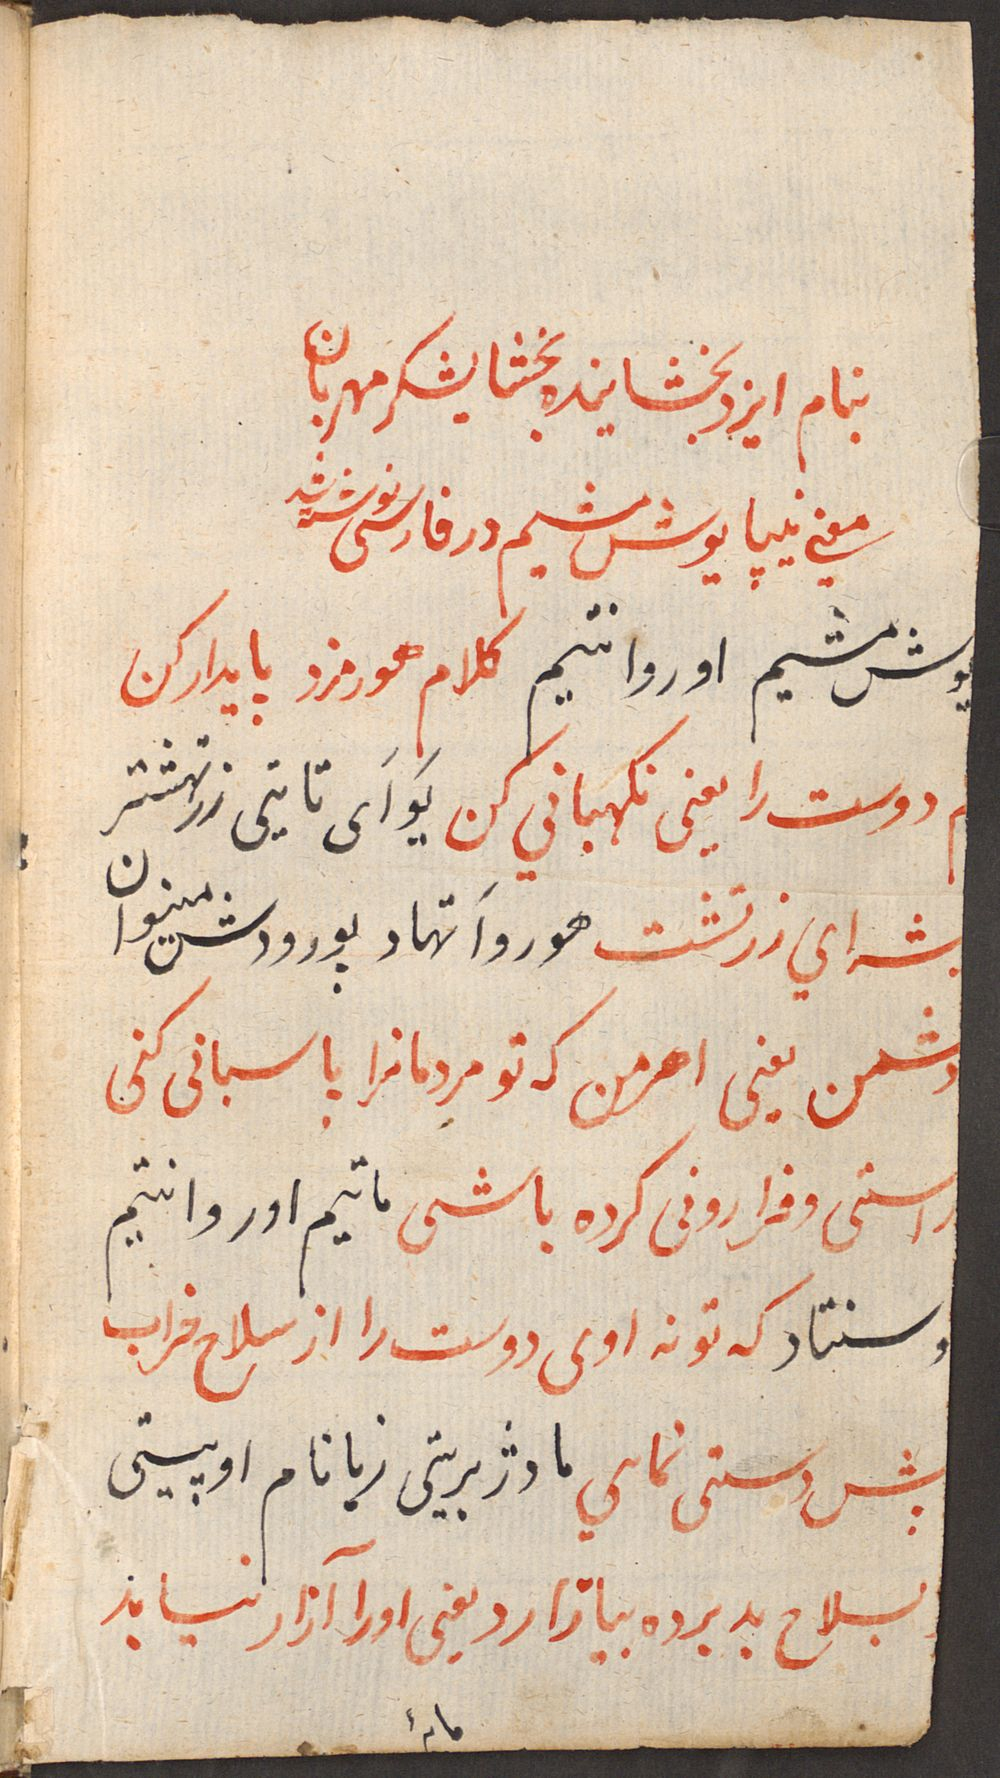 بنام ایزد بخشاینده بخشایشگر مهربان
معنی نیپایوش مشیم در فارسی نوشته شد
یوش مشیم اوروانتیم کلام هورمزد پایدار کن
م دوست را یعنی نکهبانی کن یَو اَی تایتی زرتهشتر
شه ای زرتشت هورواَتهاد پوروش مینوان
دشمن یعنی اهرمن که تو مردمانرا پاسبانی کنی
راستی و فرارونی کرده باشی ماتیم اوروانتیم
سنتاد که تو نه اوی دوست را از سلاح خراب
پش دستی نمای مادژبریتی زیانام اوپیتی
بسلاح بد برده بیازارد یعنی اورا آزار نسیابد